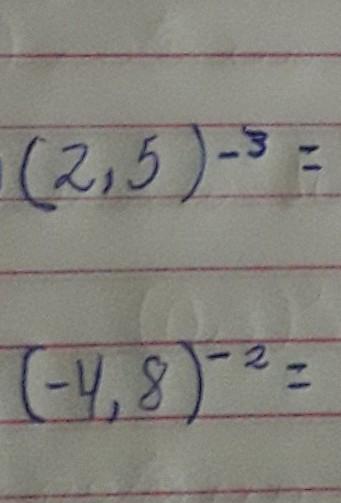 (2,5)⁻³ =
(-4,8)⁻² =